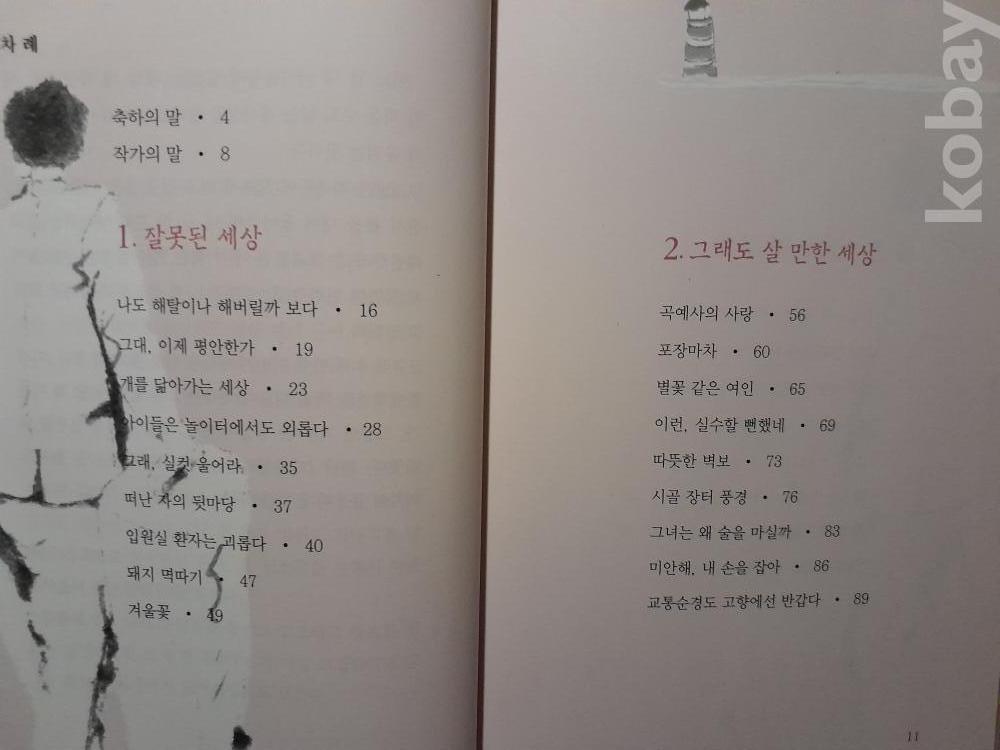 차 례
축하의 말 • 4
작가의 말 • 8
1. 잘못된 세상
나도 해탈이나 해버릴까 보다 • 16
그대, 이제 평안한가 • 19
개를 닮아가는 세상 • 23
아이들은 놀이터에서도 외롭다 • 28
그래, 실컷 울어라 • 35
떠난 자의 뒷마당 • 37
입원실 환자는 괴롭다 • 40
돼지 멱따기 • 47
겨울꽃 • 49
2. 그래도 살 만한 세상
곡예사의 사랑 • 56
포장마차 • 60
별꽃 같은 여인 • 65
이런, 실수할 뻔했네 • 69
따뜻한 벽보 • 73
시골 장터 풍경 • 76
그녀는 왜 술을 마실까 • 83
미안해, 내 손을 잡아 • 86
교통순경도 고향에선 반갑다 • 89
11
kobay